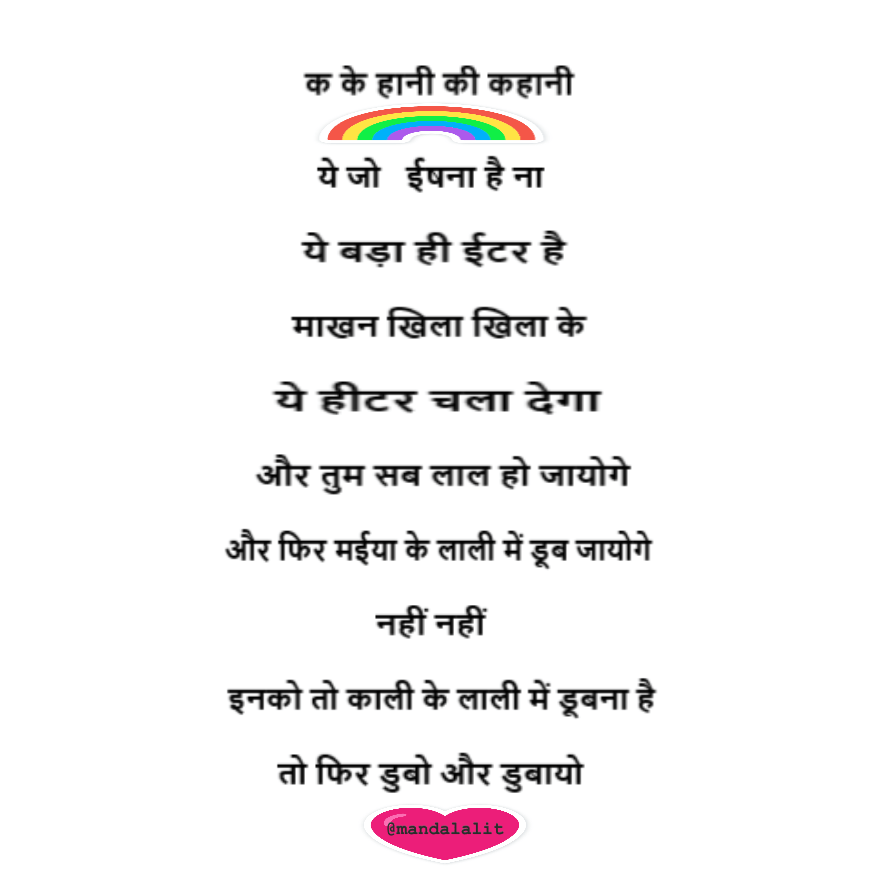 क के हानी की कहानी
ये जो ईषना है ना
ये बड़ा ही ईटर है
माखन खिला खिला के
ये हीटर चला देगा
और तुम सब लाल हो जायोगे
और फिर मईया के लाली में डूब जायोगे
नहीं नहीं
इनको तो काली के लाली में डूबना है
तो फिर डुबो और डुबायो
@mandalalit